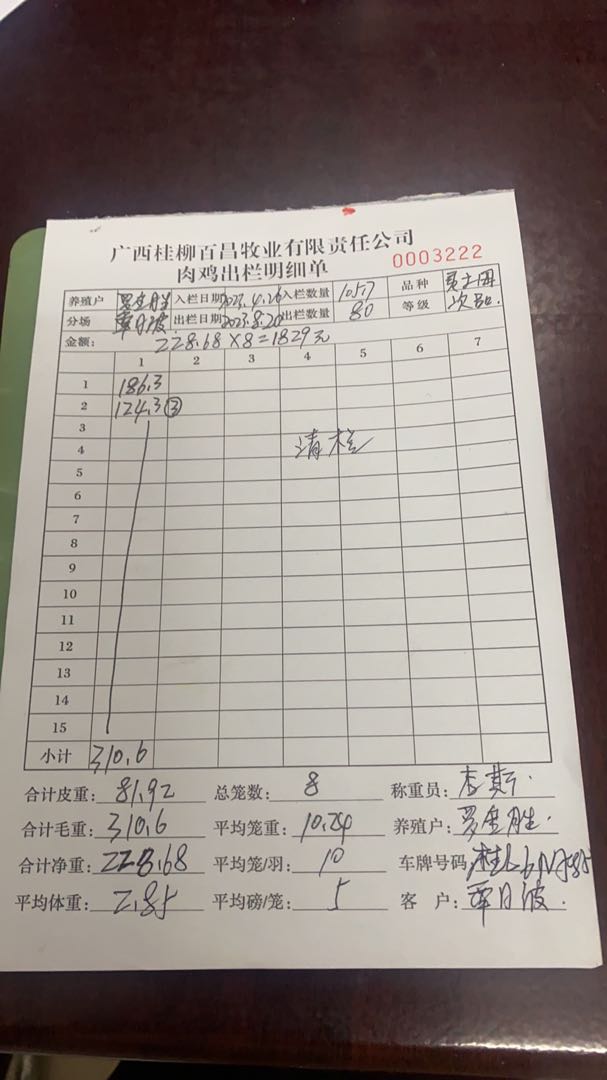 广西桂柳百昌牧业有限责任公司
肉鸡出栏明细单 0003222
养殖户 入栏日期 2023.4.26 入栏数量 1057 品种
分场 覃日波 出栏日期 2023.8.20 出栏数量 80 等级 次品
金额: 228.68×8=1829元
1 2 3 4 5 6 7
1 186.3
2 124.3 ③
3
4 清栏
5
6
7
8
9
10
11
12
13
14
15
小计 310.6
合计皮重: 81.92 总笼数: 8 称重员:
合计毛重: 310.6 平均笼重: 10.24 养殖户:
合计净重: 228.68 平均笼/羽: 10 车牌号码
平均体重: 2.85 平均磅/笼: 5 客户: 覃日波